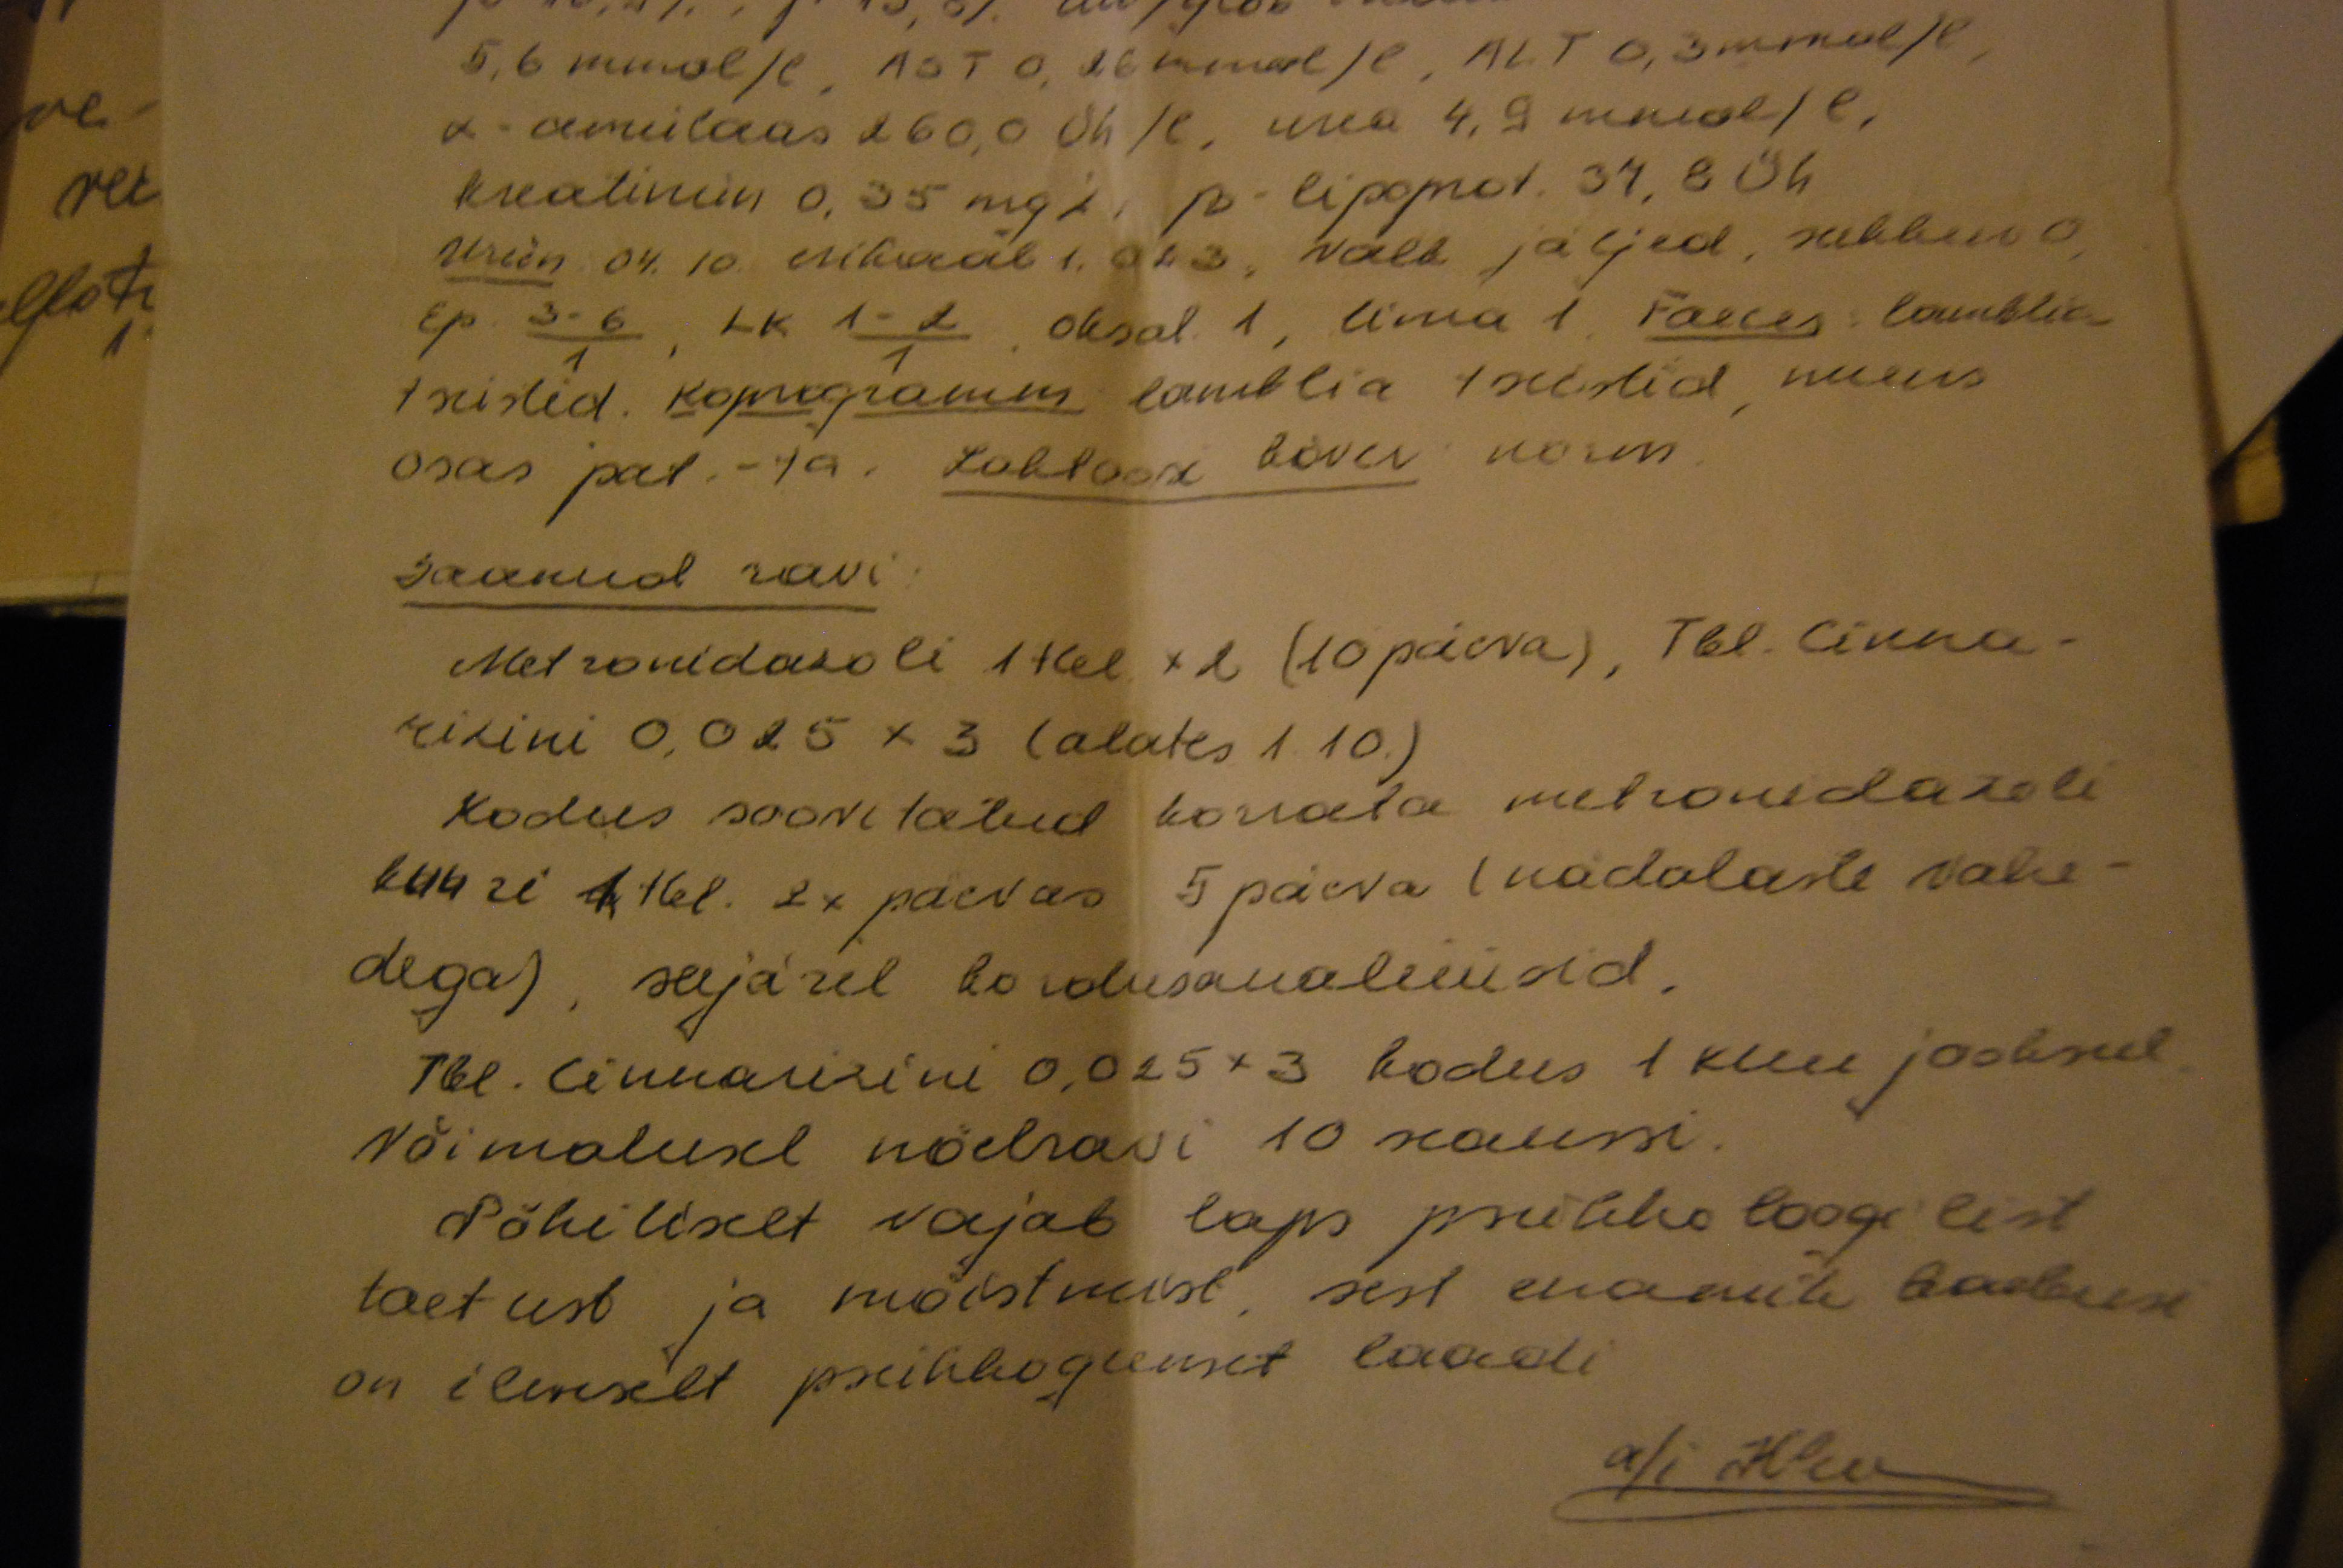 5,6 mmol/l, AST 0,26 mmol/l, ALT 0,3 mmol/l,
α-amülaas 260,0 Üh/l, urea 4,9 mmol/l,
kreatiniin 0,35 mg%, β-lipoprot. 37,8 Üh
Uriin 04.10. erikaal 1.023, valk jäljed, suhkur 0,
Ep. 3-6/1, LK 1-2/1, oksal. 1, lima 1. Faeces: lamblia
tsüstid. Koprogramm lamblia tsüstid, muus
osas pat.-ta. Kõver norm.
Saanud ravi:
Metronidazoli 1 tbl. x 2 (10 päeva), Tbl. Cinna-
rizini 0,025 x 3 (alates 1.10.)
Kodus soovitatud korrata metronidazoli
kuuri 1 tbl. 2x päevas 5 päeva (nädalaste vahe-
dega), seejärel kordusanalüüsid.
Tbl. Cinnarizini 0,025 x 3 kodus 1 kuu jooksul.
Võimalusel nõelravi 10 seanssi.
Põhiliselt vajab laps psühholoogilist
toetust ja mõistmist, sest enamik kaebusi
on ilmselt psühhogeenset laadi
a/i
ve-